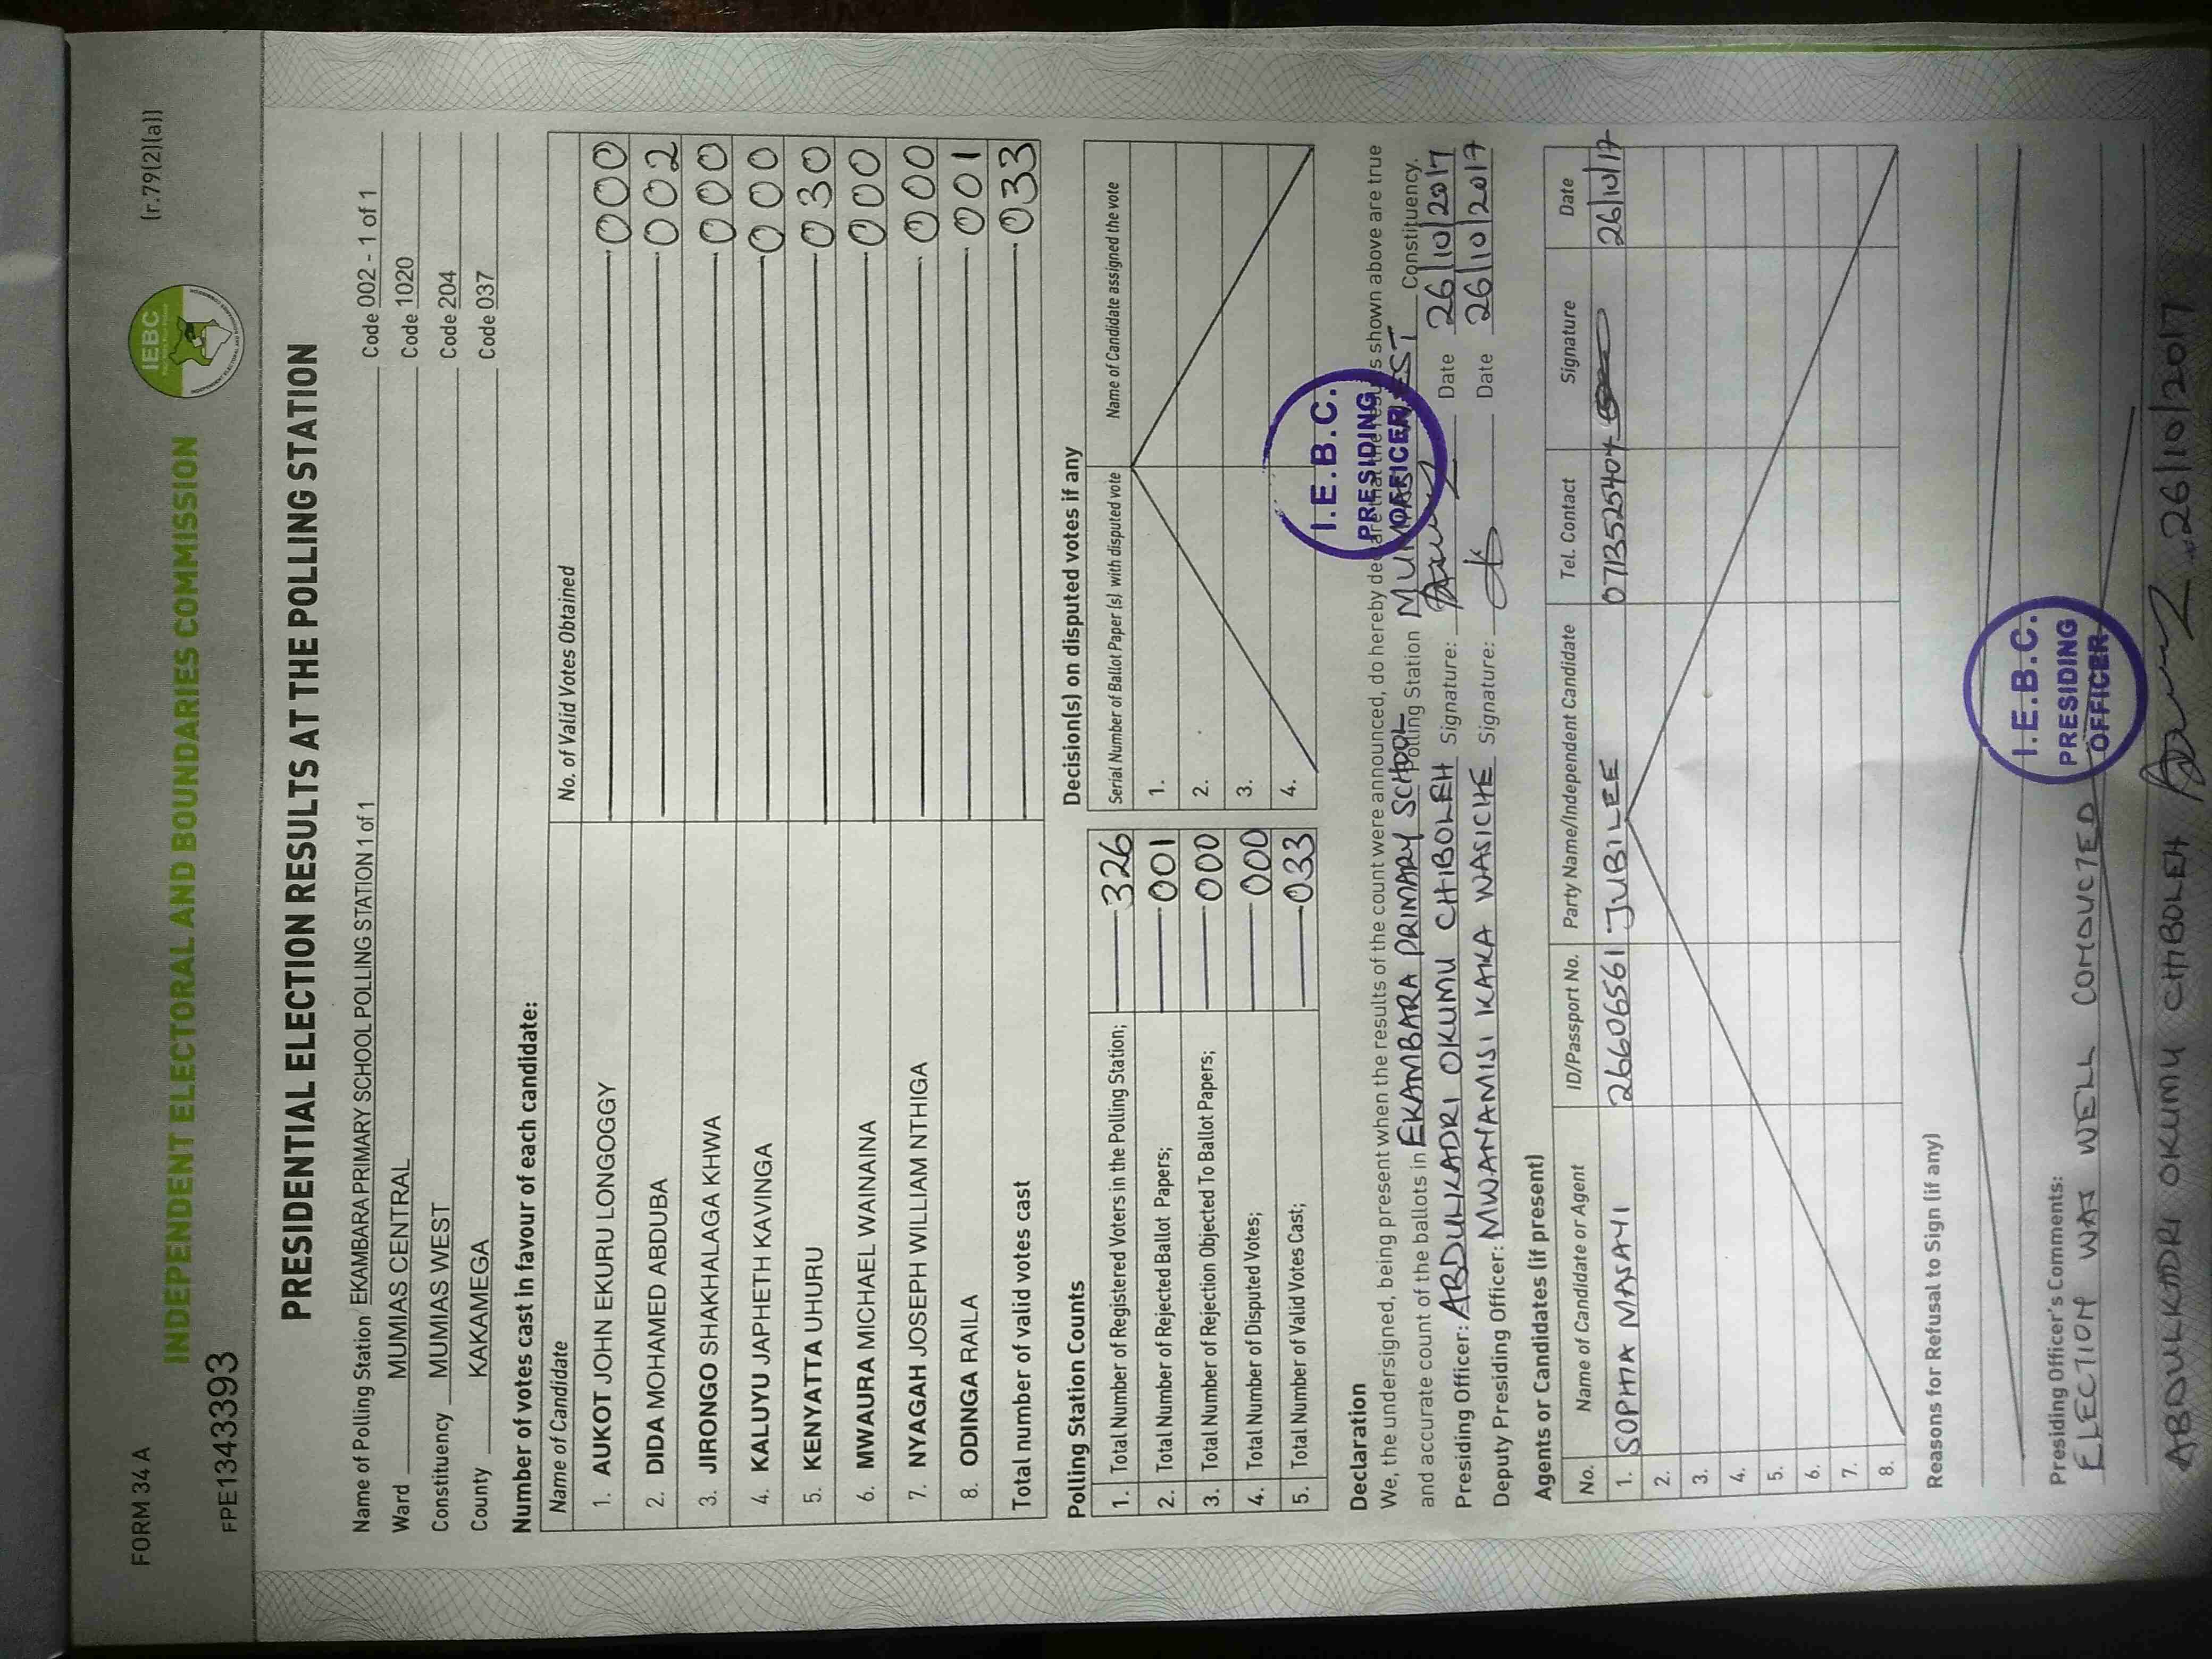 FORM 34 A
IEBC
(r.79(2)(a))
INDEPENDENT ELECTORAL AND BOUNDARIES COMMISSION
FPE1343393
PRESIDENTIAL ELECTION RESULTS AT THE POLLING STATION
Name of Polling Station EKAMBARA PRIMARY SCHOOL POLLING STATION 1 of 1 Code 002 - 1 of 1
Ward MUMIAS CENTRAL Code 1020
Constituency MUMIAS WEST Code 204
County KAKAMEGA Code 037
Number of votes cast in favour of each candidate:
Name of Candidate No. of Valid Votes Obtained
1. AUKOT JOHN EKURU LONGOGGY 000
2. DIDA MOHAMED ABDUBA 002
3. JIRONGO SHAKHALAGA KHWA 000
4. KALUYU JAPHETH KAVINGA 000
5. KENYATTA UHURU 030
6. MWAURA MICHAEL WAINAINA 000
7. NYAGAH JOSEPH WILLIAM NTHIGA 000
8. ODINGA RAILA 001
Total number of valid votes cast 033
Polling Station Counts
1. Total Number of Registered Voters in the Polling Station; 326
2. Total Number of Rejected Ballot Papers; 001
3. Total Number of Rejection Objected To Ballot Papers; 000
4. Total Number of Disputed Votes; 000
5. Total Number of Valid Votes Cast; 033
Decision(s) on disputed votes if any
Serial Number of Ballot Paper (s) with disputed vote Name of Candidate assigned the vote
1.
2.
3.
4.
I.E.B.C.
PRESIDING
OFFICER
Declaration
We, the undersigned, being present when the results of the count were announced, do hereby declare that the results shown above are true
and accurate count of the ballots in EKAMBARA PRIMARY SCHOOL Polling Station MUMIAS WEST Constituency.
Presiding Officer: ABDULKADRI OKUMU CHIBOLEH Signature: Date 26/10/2017
Deputy Presiding Officer: MWANAMISI KAKA WASICHE Signature: Date 26/10/2017
Agents or Candidates (if present)
No. Name of Candidate or Agent ID/Passport No. Party Name/Independent Candidate Tel. Contact Signature Date
1. SOPHIA MASAYI 26606561 JUBILEE 0713525404 26/10/17
2.
3.
4.
5.
6.
7.
8.
Reasons for Refusal to Sign (if any)
Presiding Officer's Comments:
ELECTION WAS WELL CONDUCTED
I.E.B.C.
PRESIDING
OFFICER
ABDULKADRI OKUMU CHIBOLEH 26/10/2017